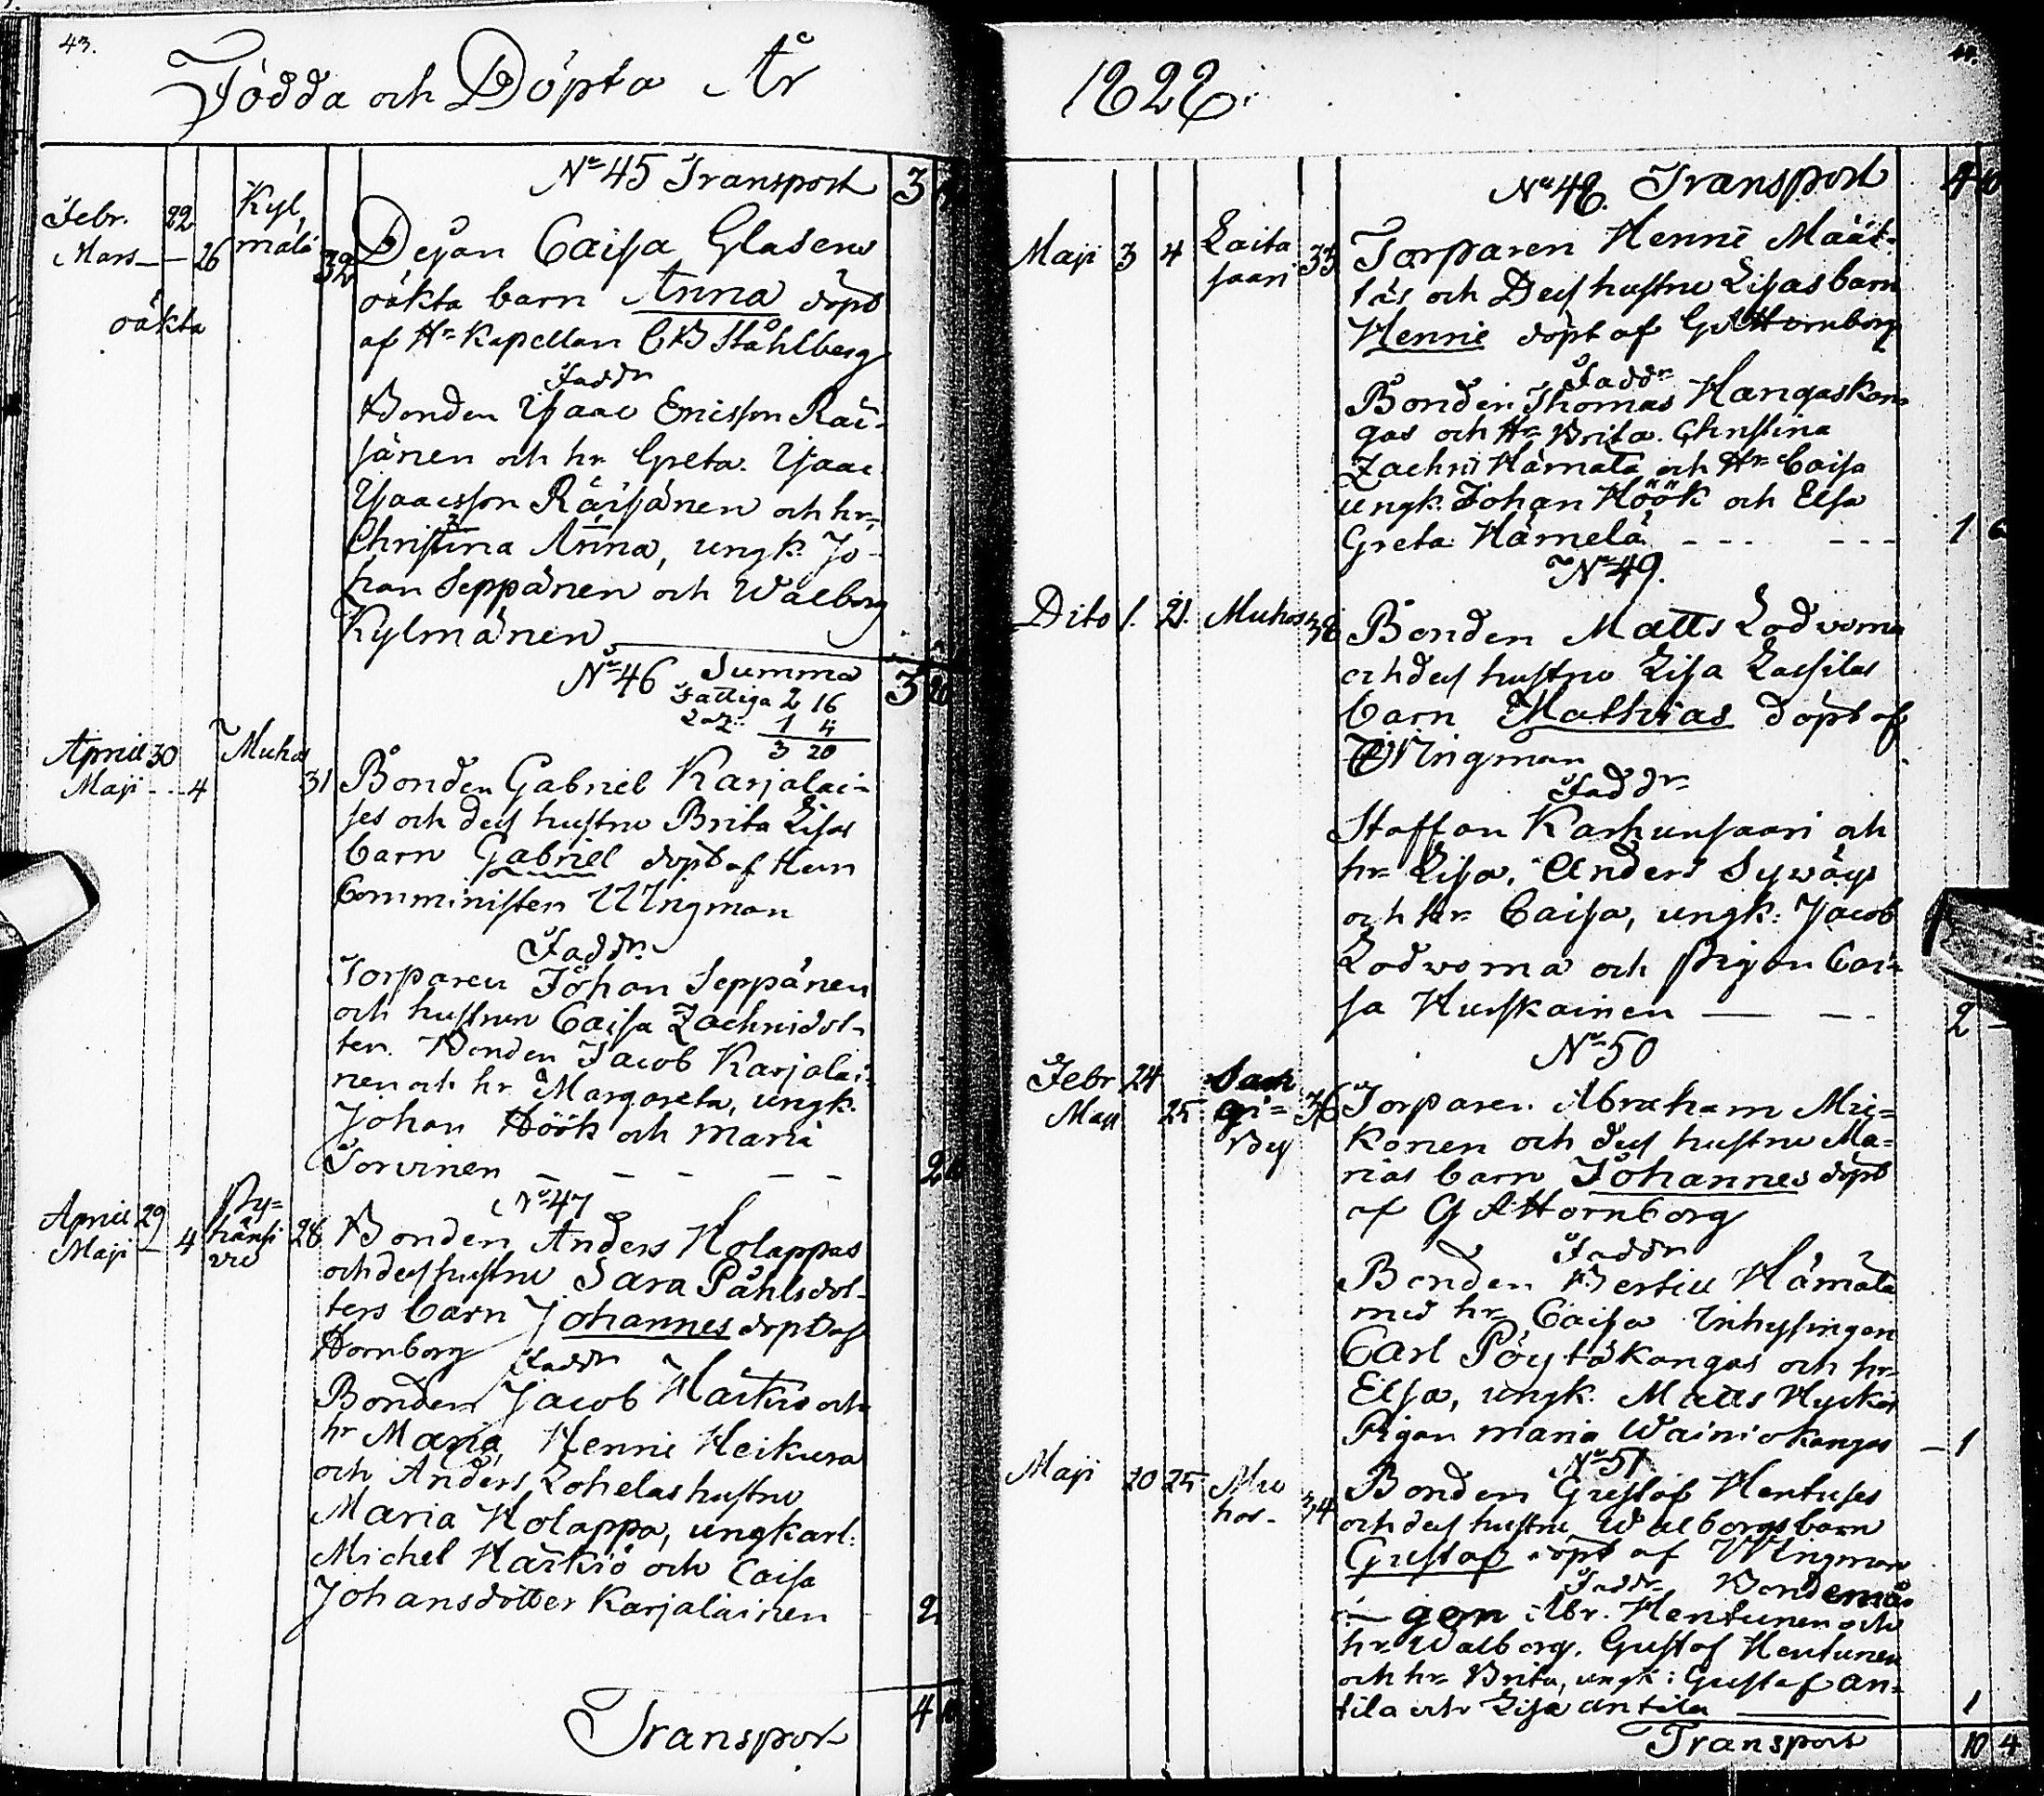 43.
Födda och Döpta År
No 45 Transport 3
Febr. 22 Kyl,
Mars — — 26 mälä 32
oäkta
Pejan Caisa Glasens
oäkta barn Anna döpt
af Hr Kapellan Ståhlberg
Faddr
Bonden Isaac Ericsson Räi-
sänen och hr Greta. Isaac
Isaacsson Räisänen och hr
Christina Anna, ungk. Jo-
han Seppänen och Walborg
Kylmänen
Summa 3 20
No 46
Fattiga 2 16
1 4
3 20
April 30 Muhos
Maji - - 4 31
Bonden Gabriel Karjalai-
ses och dess hustru Brita Lisas
barn Gabriel döpt af Herr
Comministern Wingman
Faddr.
Torparen Johan Seppänen
och hustrun Caisa Zachridot-
ter. Bonden Jacob Karjalai-
nen och hr Margareta, ungk.
Johan Höök och Maria
Torvinen — — — — — 2
No 47
April 29 Py=
Maji — 4 hänsi 28
vu
Bonden Anders Holappas
och dess hustru Sara Påhlsdot-
ters barn Johannes döpt af
Hornborg
Faddr
Bonden Jacob Härkiö och
hr Maria, Henric Heikura
och Anders Lohelas hustru
Maria Holappa, ungkarl:
Michel Härkiö och Caisa
Johansdotter Karjalainen 2
Transport 4
44.
1822.
No 48. Transport
Maji 3 4 Laita
saari 33
Torparen Henric Määt-
täs och Dess hustru Lisas barn
Henric döpt af G A Hornborg
Faddr
Bonden Thomas Hangaskan-
gas och Hr Brita. Christina
Zachri Hämälä och Hr Caisa
ungk. Johan Höök och Elsa
Greta Hämelä - - - - - - 1 6
No 49.
Dito 1. 21. Muhos 38
Bonden Matts Lodvoma
och dess hustru Lisa Lassilas
barn Mathias döpt af
Wingman
Faddr
Staffan Karhunsaari och
hr Lisa, Anders Sywäys
och hr Caisa, ungk: Jacob
Lodvoma och Pigan Cai=
sa Hurskainen — — 2 —
No 50
Febr 24 Sang
Maji 25 gi= 36
By
Torparen Abraham Mu=
konen och dess hustru Ma=
rias barn Johannes döpt
af G A Hornborg
Faddr
Bonden Bertill Hämälä
med hr Caisa Inhysingen
Carl Pöytäkangas och hr
Elsa, ungk. Matts Hyckö
Pigan Maria Wainiokangas — 1
No 51
Maji 20 25 Mu
hos - 34
Bonden Gustaf Hentuses
och dess hustru Walborgs barn
Gustaf döpt af Wingman
Faddr Bondemå-
gen Abr. Hentunen och
hr Walborg, Gustaf Hentunen
och hr Brita, ungk: Gustaf An=
tila och Lisa Antila — 1
Transport 10 4